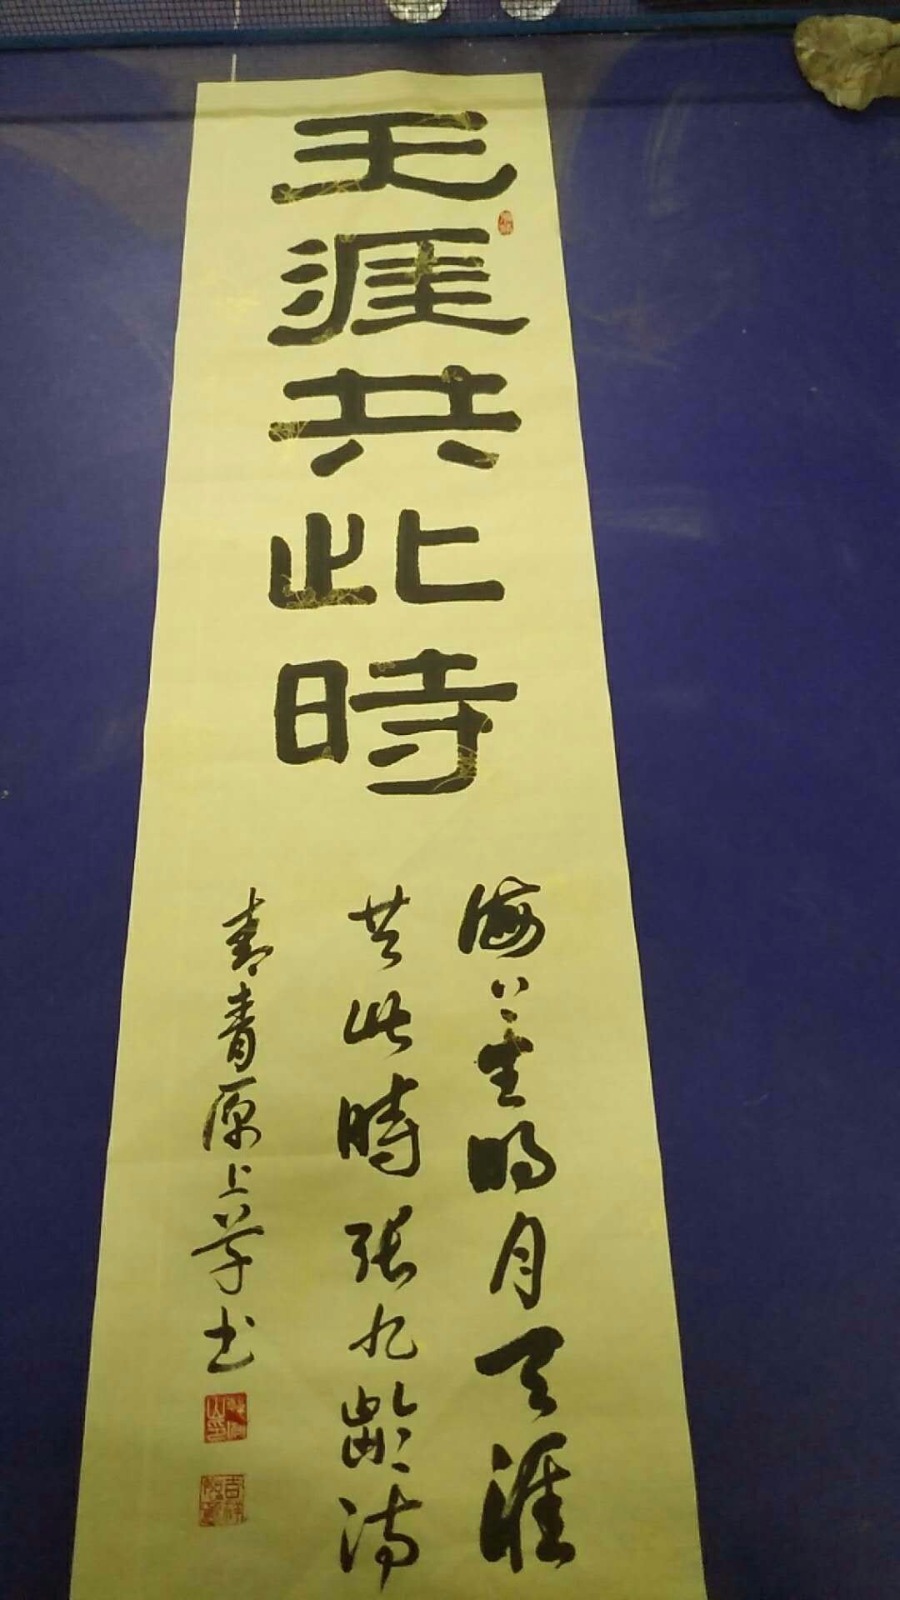 天涯共此時
海上生明月天涯
共此時張九齡詩
青原上草书